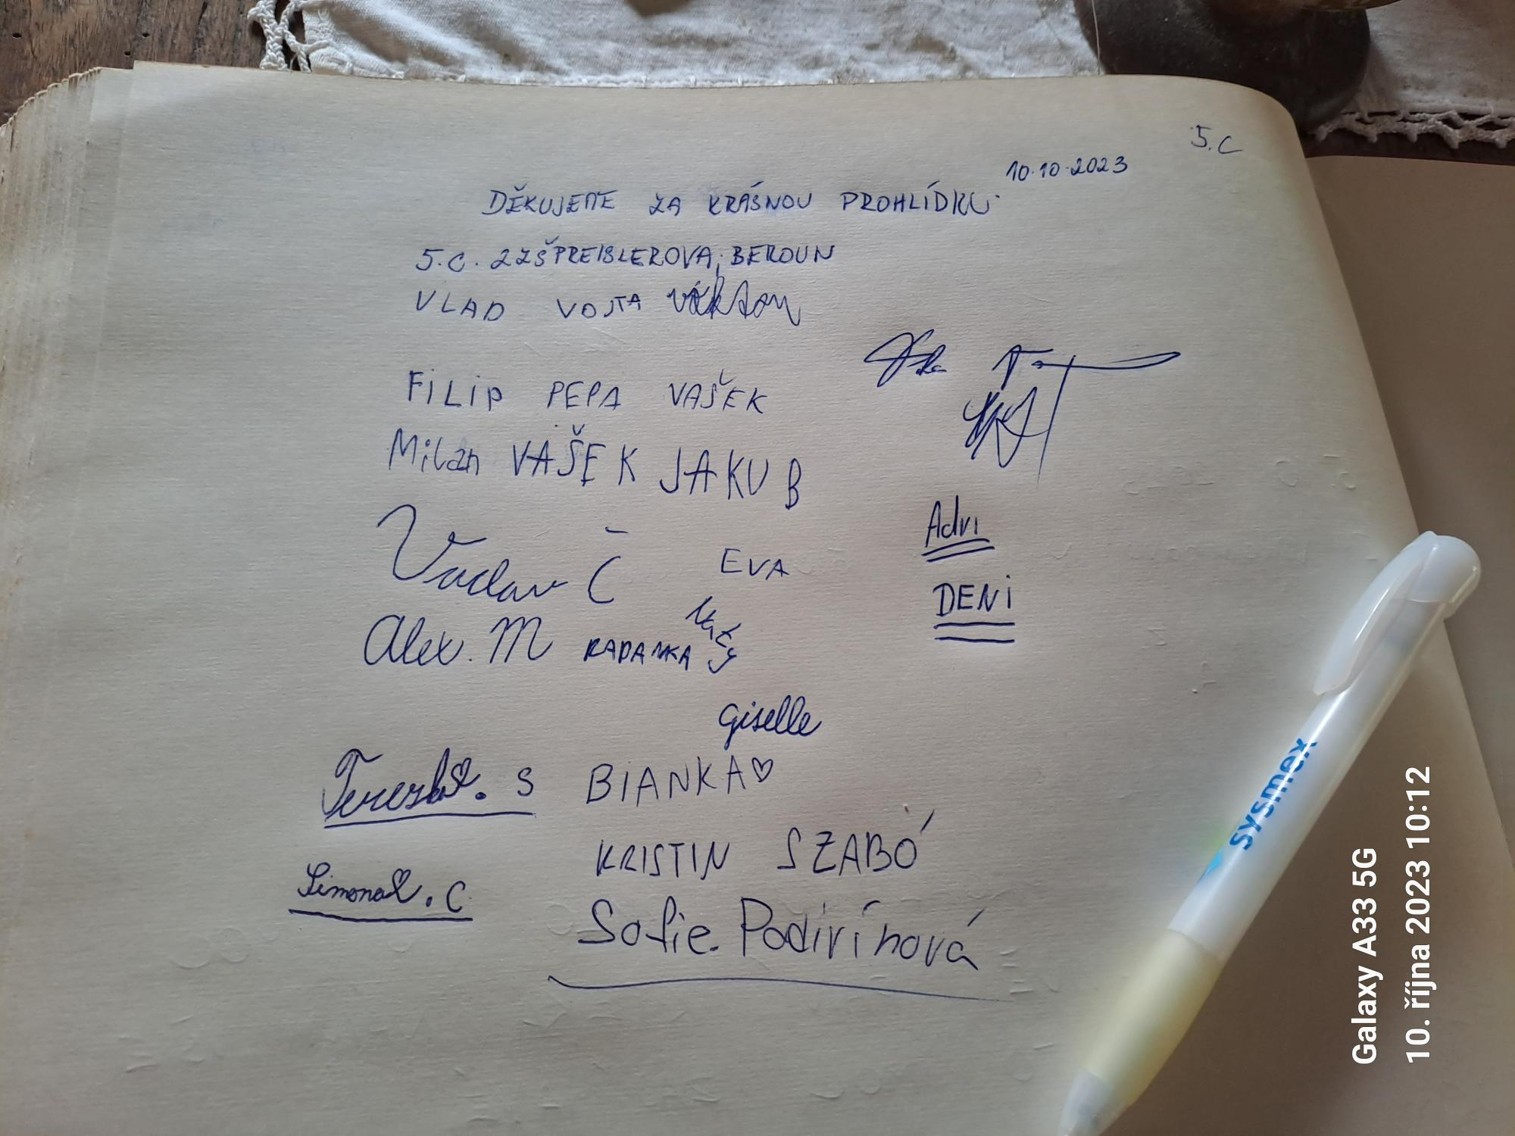 5.C
10.10.2023
DĚKUJEME ZA KRÁSNOU PROHLÍDKU
5.C. 2ZŠ PREISLEROVA, BEROUN
VLAD VOJTA Viktor
FiLip PEPA VAŠEK
Milan VAŠEK JAKUB
Václav Č EVA
Advi
DENi
Alex. M RADANKA Naty
giselle
Terezka. S BIANKA♡
KRISTIN SZABÓ
Simona. C
Sofie. Podivínová
sysmex
Galaxy A33 5G
10. října 2023 10:12